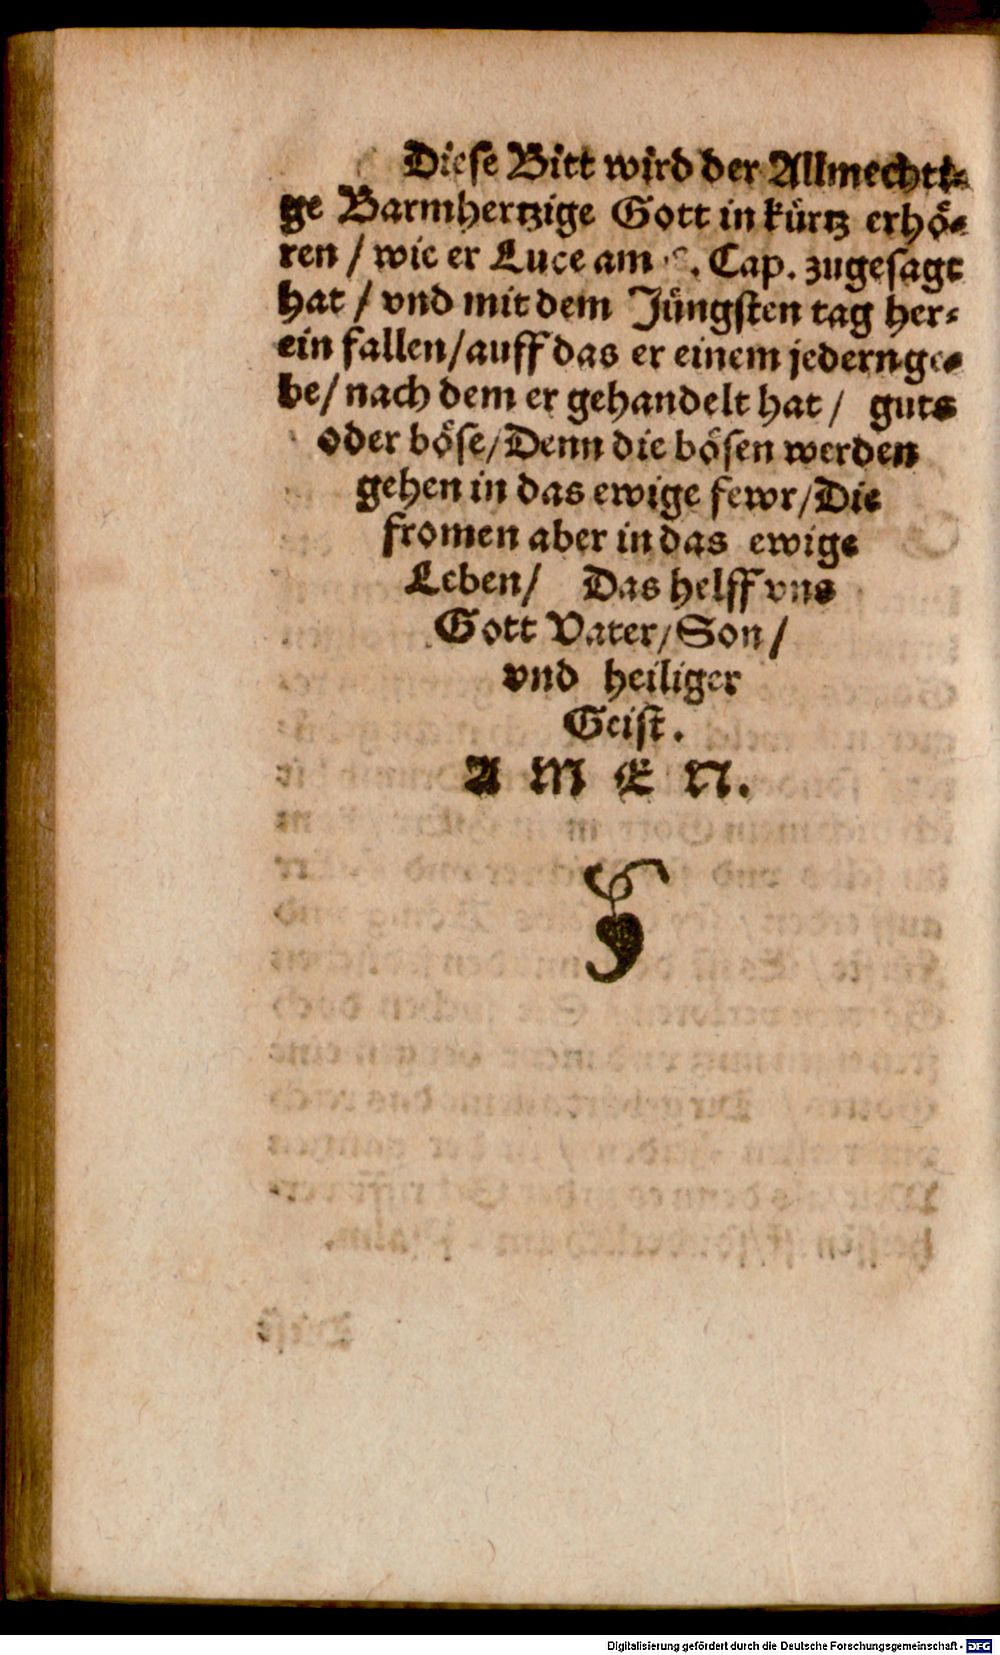 Diese Bitt wird der Allmechti⸗
ge Barmhertzige Gott in kürtz erhö⸗
ren / wie er Luce am . Cap. zugesagt
hat / vnd mit dem Jüngsten tag her⸗
ein fallen/ auff das er einem jedern ge⸗
be/ nach dem er gehandelt hat / guts
oder böse/ Denn die bösen werden
gehen in das ewige fewr/ Die
fromen aber in das ewige
Leben/ Das helff vns
Gott Vater/ Son/
vnd heiliger
Geist.
A M E N.
Digitalisierung gefördert durch die Deutsche Forschungsgemeinschaft - DFG